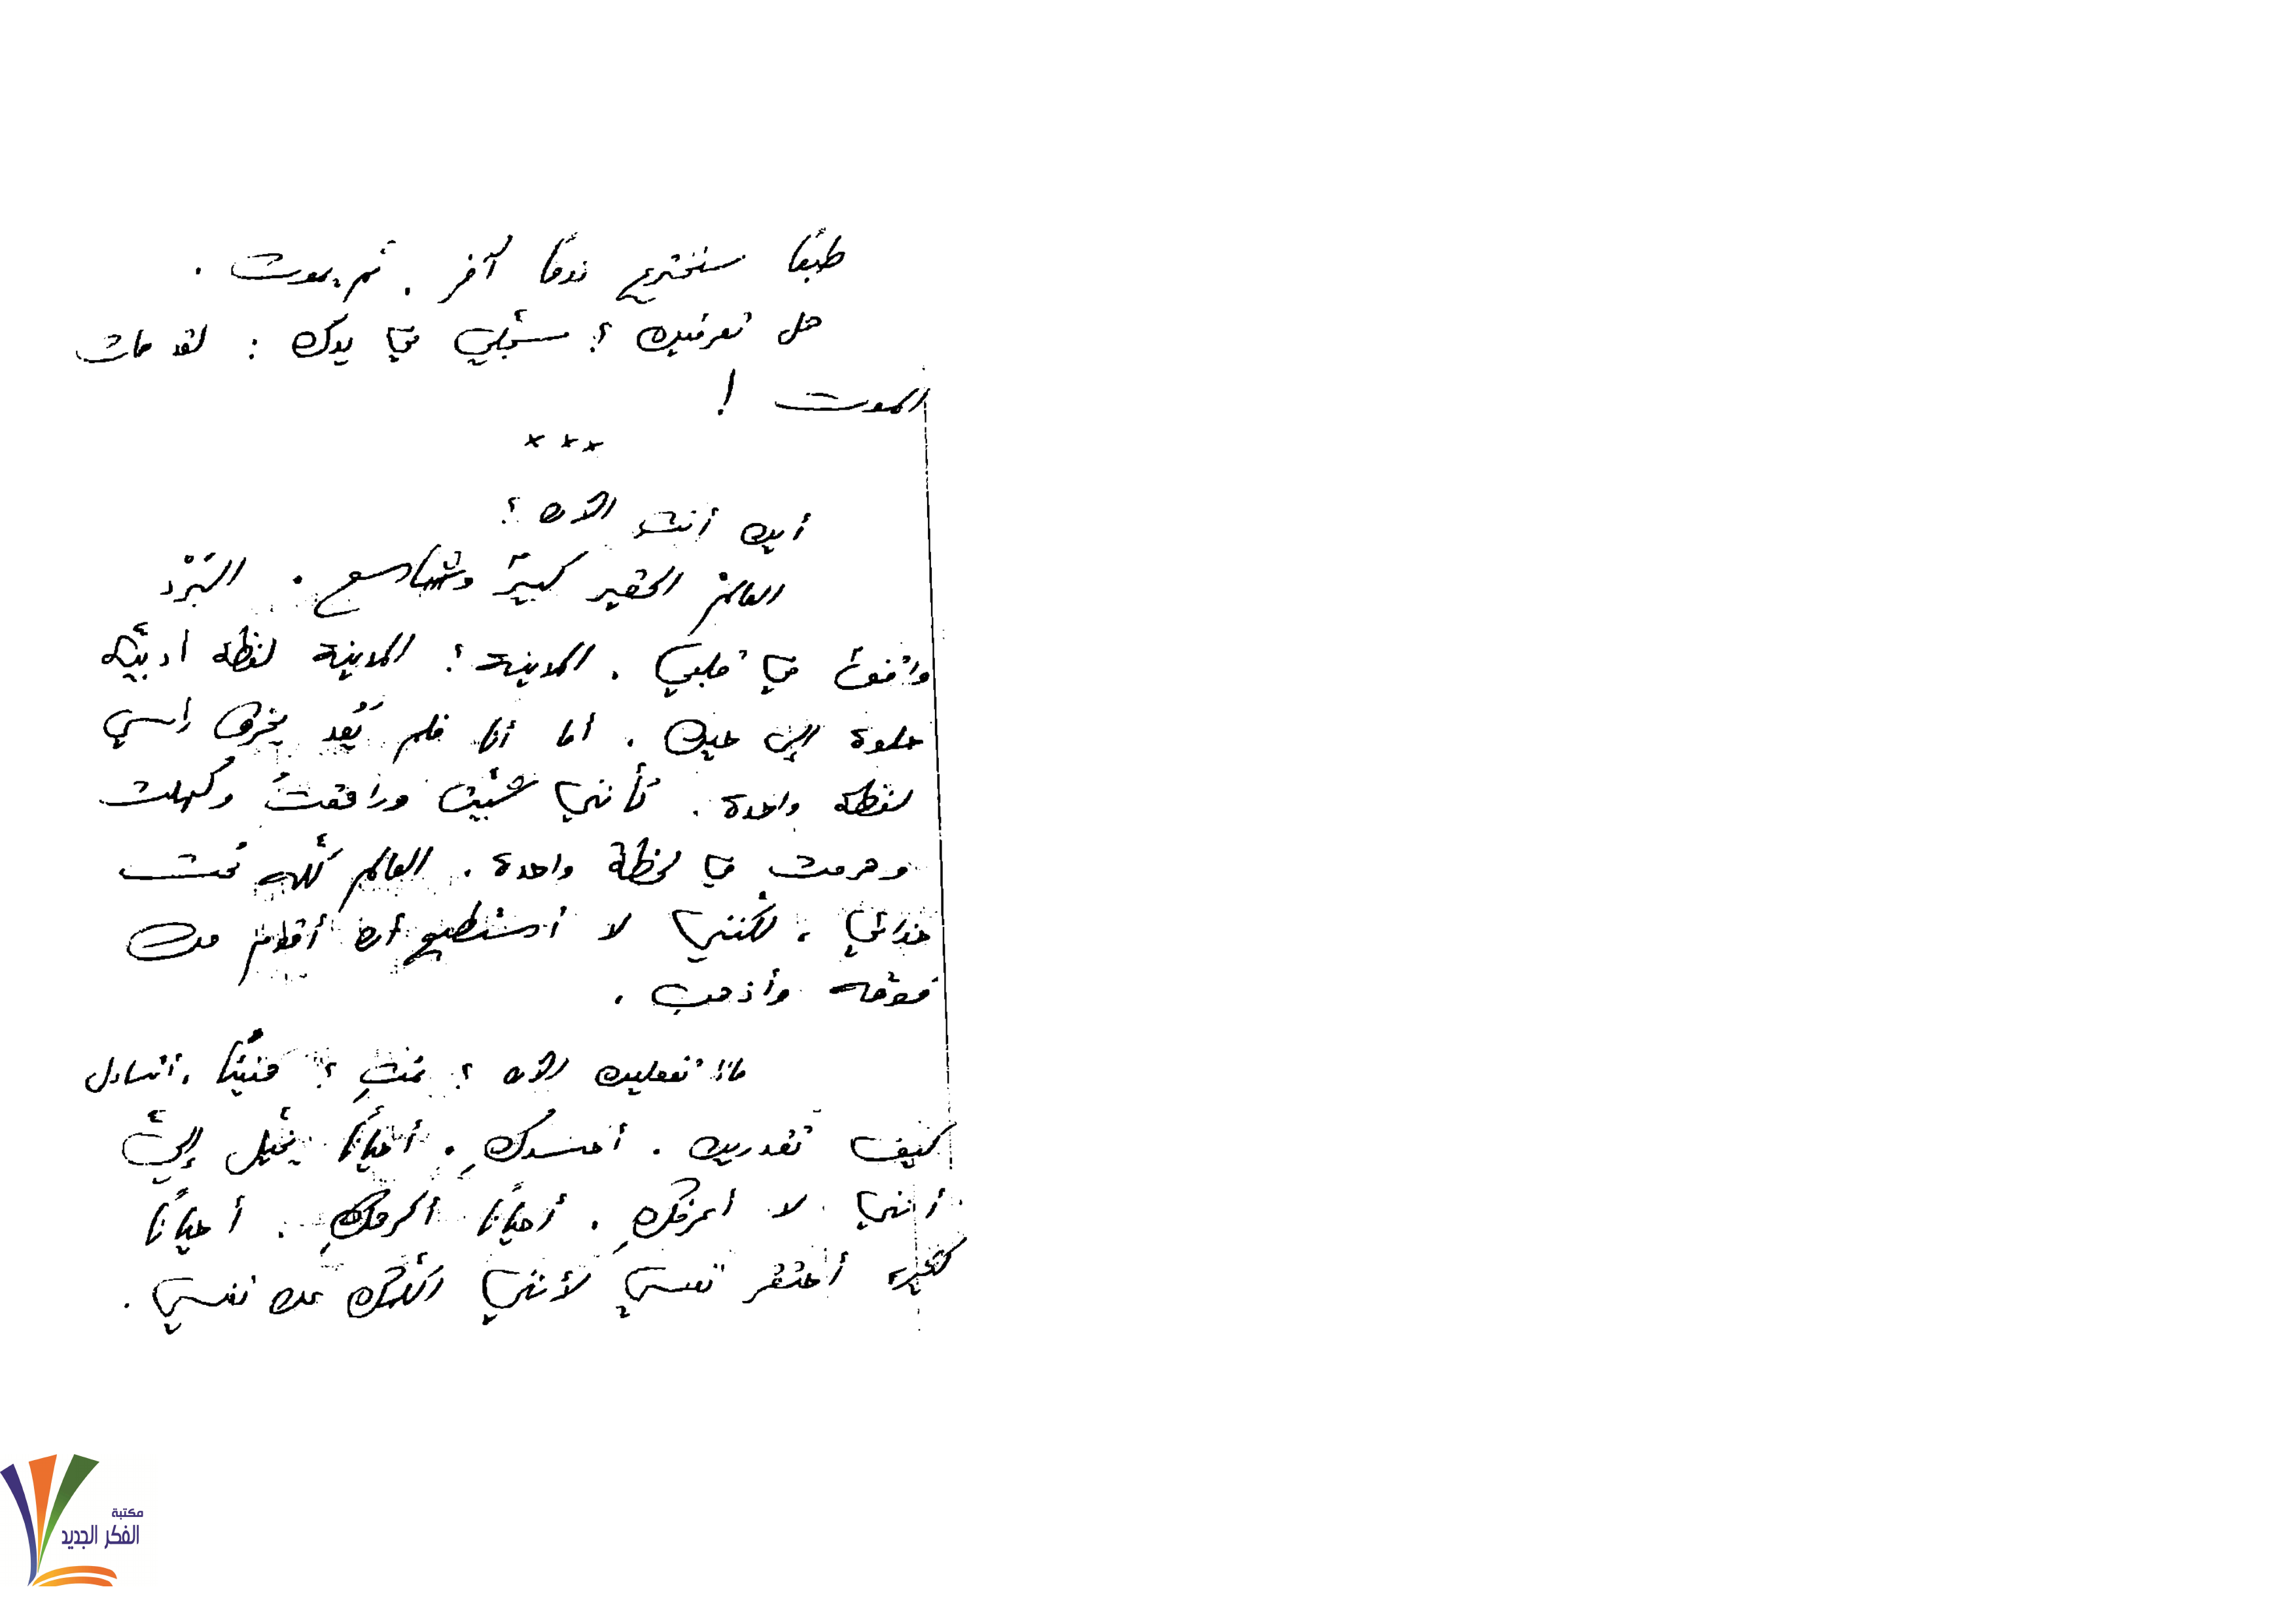 طبعًا سنخترع نوعًا آخر . ثم يموت .
هل تعرفين ؟ سجّلي في يدك : لقد مات
الموت !
×××
أين أنت الآن ؟
العالم الحقير كبيرٌ وشاسع . البَرْد
والخوف في قلبي . المدينة ؟ المدينة لفظة أدبيّة
حلوة إلى حين . أما أنا فلم يَعُد يخرق رأسي
لفظة واحدة . كأنني شبيت وراهقتُ وكَهِلت
وهرمت في لحظة واحدة . العالم كلّه تحت
حذائي ، لكنني لا أستطيع أن أقوم من
فوقه وأذهب .
ماذا تفعلين الآن ؟ نمتِ ؟ هنيئًا . أتساءل
كيف تقدرين . أحسدُكِ . أحيانًا يخيّل إليّ
أنني لا أعرفكِ . أحيانًا أكرهكِ . أحيانًا
كثيرة أحتقر نفسي لأنني أكلّمك عن نفسي .
مكتبة
الفكر الجديد